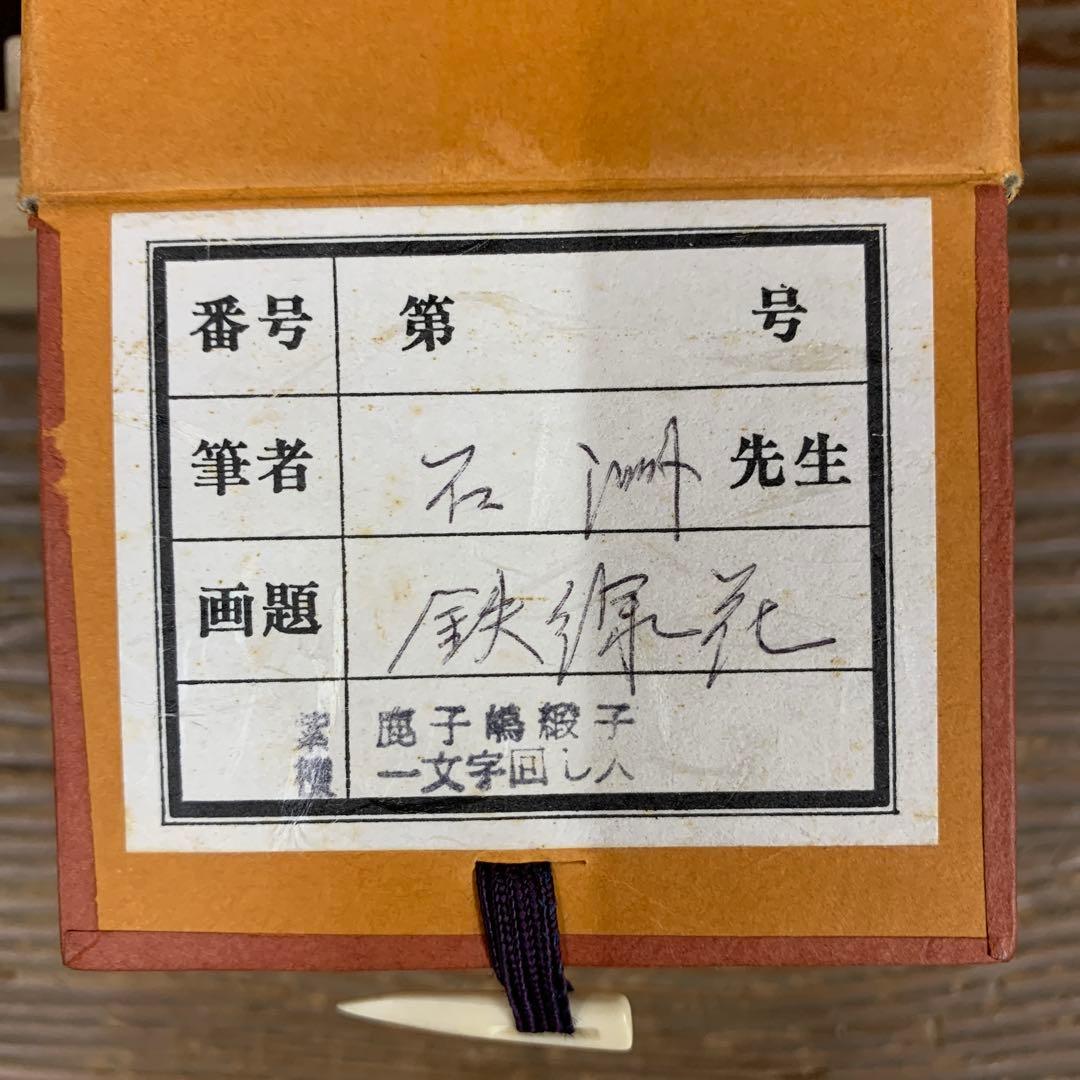 番号 第 号
筆者 石洲 先生
画題 鉄線花
鹿子嶋緞子
一文字回し入